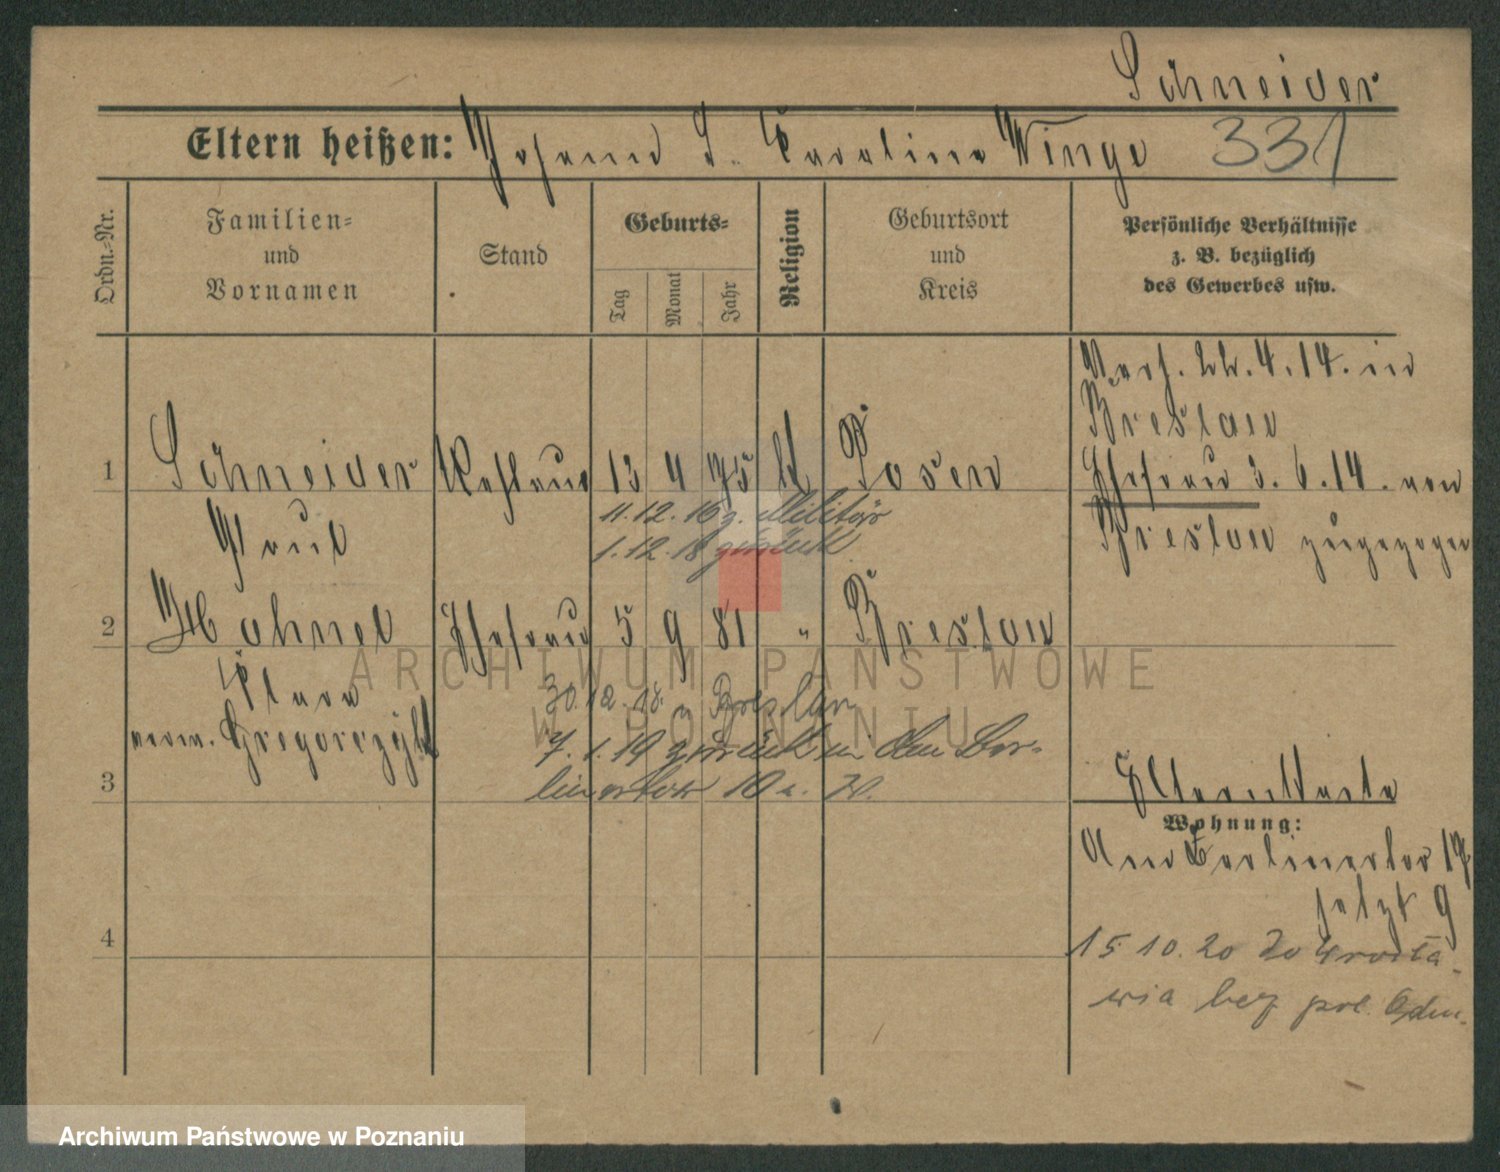 Schneider
Eltern heißen: Johann S. Karoline Winge 331
Ordn.-Nr.
Familien-
und
Vornamen
Stand
Geburts-
Tag
Monat
Jahr
Religion
Geburtsort
und
Kreis
Persönliche Verhältnisse
z. B. bezüglich
des Gewerbes usw.
Verh. 22.4.14. in
Breslau
Ehefrau 3.6.14. von
Breslau zugezogen
1 Schneider 13 4 75 Posen
Paul
11.12.16 z. Militär
1.12.18 zurück
2 Hähnel Ehefrau 5 9 81 " Breslau
Klara
verw. Gregorczyk
30.12.18. n Breslau
7.1.19 zurück Am Ber-
linertor 10
3
Wohnung:
Am Berlinertor
jetzt 9
4
15 10. 20
bez pol.
ARCHIWUM PAŃSTWOWE
W POZNANIU
Archiwum Państwowe w Poznaniu